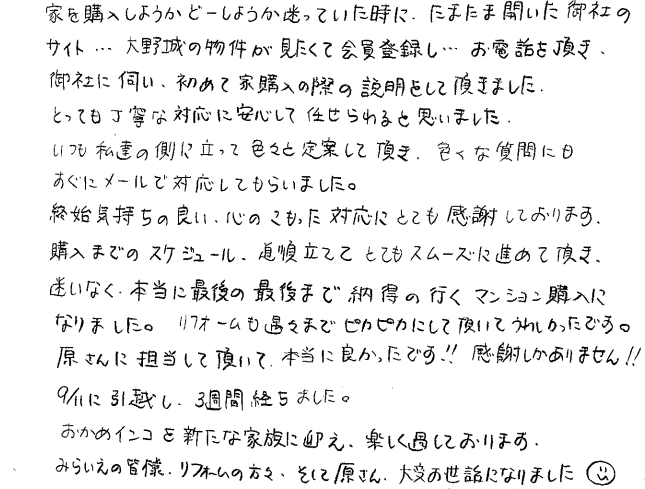 家を購入しようかどーしようか迷っていた時に、たまたま開いた御社の
サイト… 大野城の物件が見たくて会員登録し… お電話を頂き、
御社に伺い、初めて家購入の際の説明をして頂きました。
とっても丁寧な対応に安心して任せられると思いました。
いつも私達の側に立って色々と定案して頂き、色々な質問にも
すぐにメールで対応してもらいました。
終始気持ちの良い、心のこもった対応にとても感謝しております。
購入までのスケジュール、道順立ててとてもスムーズに進めて頂き、
迷いなく、本当に最後の最後まで納得の行くマンション購入に
なりました。 リフォームも隅々までピカピカにして頂いてうれしかったです。
原さんに担当して頂いて、本当に良かったです!! 感謝しかありません!!
9/11に引越し、3週間経ちました。
おかめインコを新たな家族に迎え、楽しく過しております。
みらいえの皆様、リフォームの方々、そして原さん、大変お世話になりました